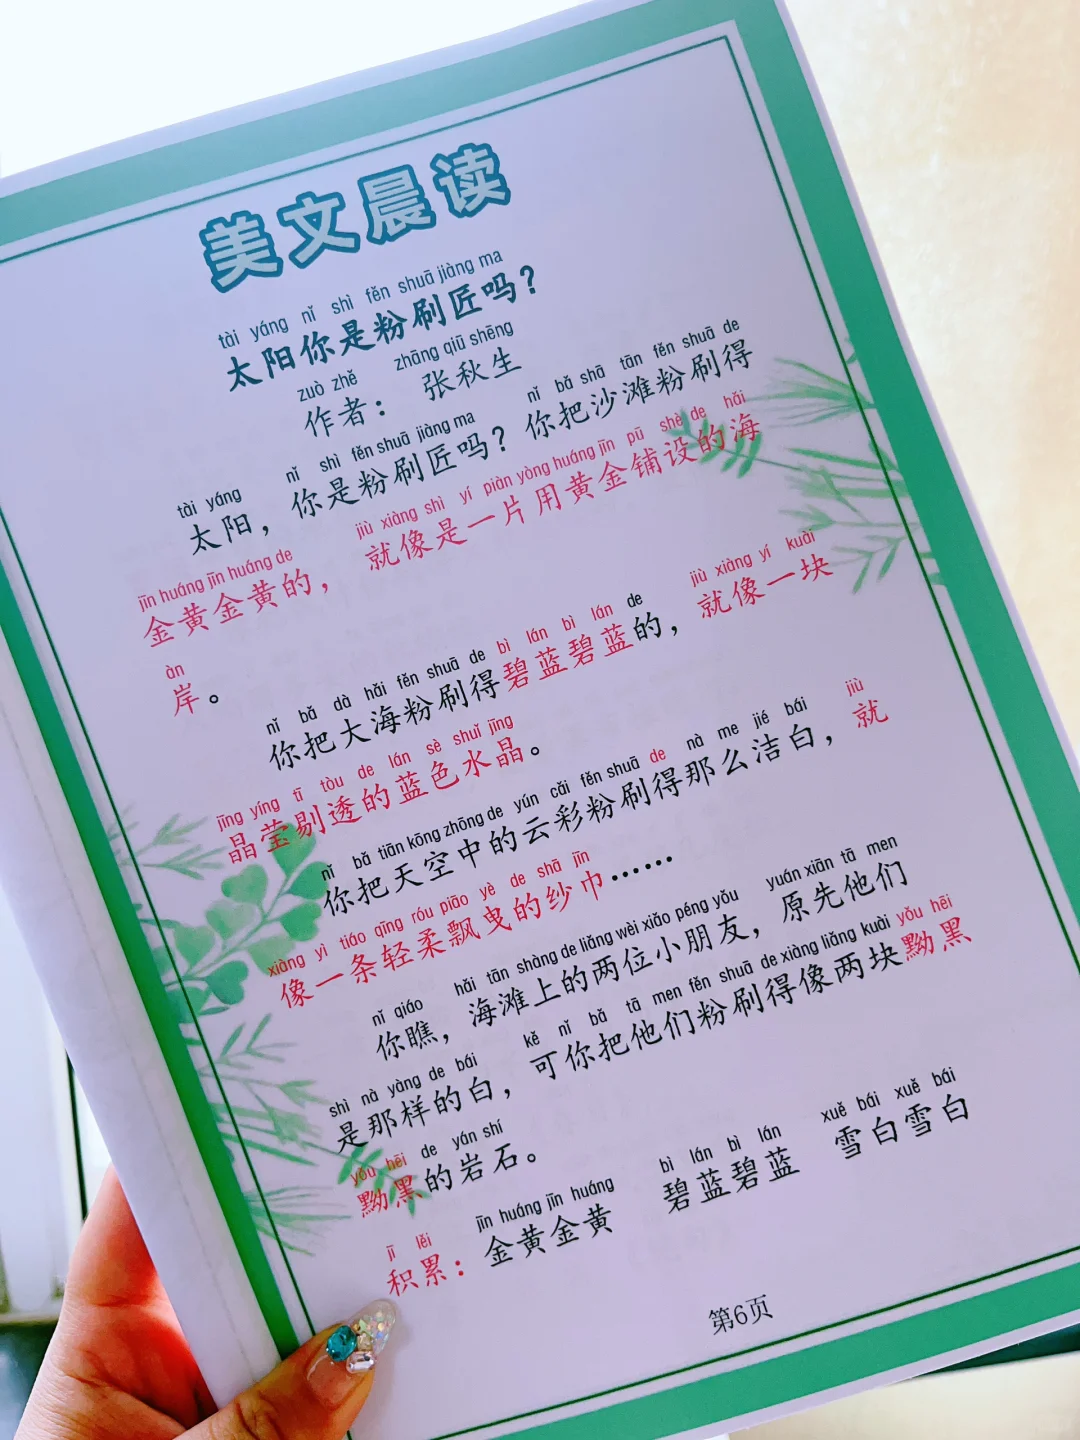 美文晨读
tài yáng nǐ shì fěn shuā jiàng ma
太阳你是粉刷匠吗？
zuò zhě zhāng qiū shēng
作者： 张秋生
tài yáng nǐ shì fěn shuā jiàng ma nǐ bǎ shā tān fěn shuā de
太阳，你是粉刷匠吗？你把沙滩粉刷得
jīn huáng jīn huáng de jiù xiàng shì yí piàn yòng huáng jīn pū shè de hǎi
金黄金黄的，就像是一片用黄金铺设的海
àn
岸。
nǐ bǎ dà hǎi fěn shuā de bì lán bì lán de jiù xiàng yí kuài
你把大海粉刷得碧蓝碧蓝的，就像一块
jīng yíng tī tòu de lán sè shuǐ jīng
晶莹剔透的蓝色水晶。
nǐ bǎ tiān kōng zhōng de yún cǎi fěn shuā de nà me jié bái jiù
你把天空中的云彩粉刷得那么洁白，就
xiàng yì tiáo qīng róu piāo yè de shā jīn
像一条轻柔飘曳的纱巾……
nǐ qiáo hǎi tān shàng de liǎng wèi xiǎo péng yǒu yuán xiān tā men
你瞧，海滩上的两位小朋友，原先他们
shì nà yàng de bái kě nǐ bǎ tā men fěn shuā de xiàng liǎng kuài yǒu hēi
是那样的白，可你把他们粉刷得像两块黝黑
yǒu hēi de yán shí
黝黑的岩石。
jī lěi jīn huáng jīn huáng bì lán bì lán xuě bái xuě bái
积累：金黄金黄 碧蓝碧蓝 雪白雪白
第6页